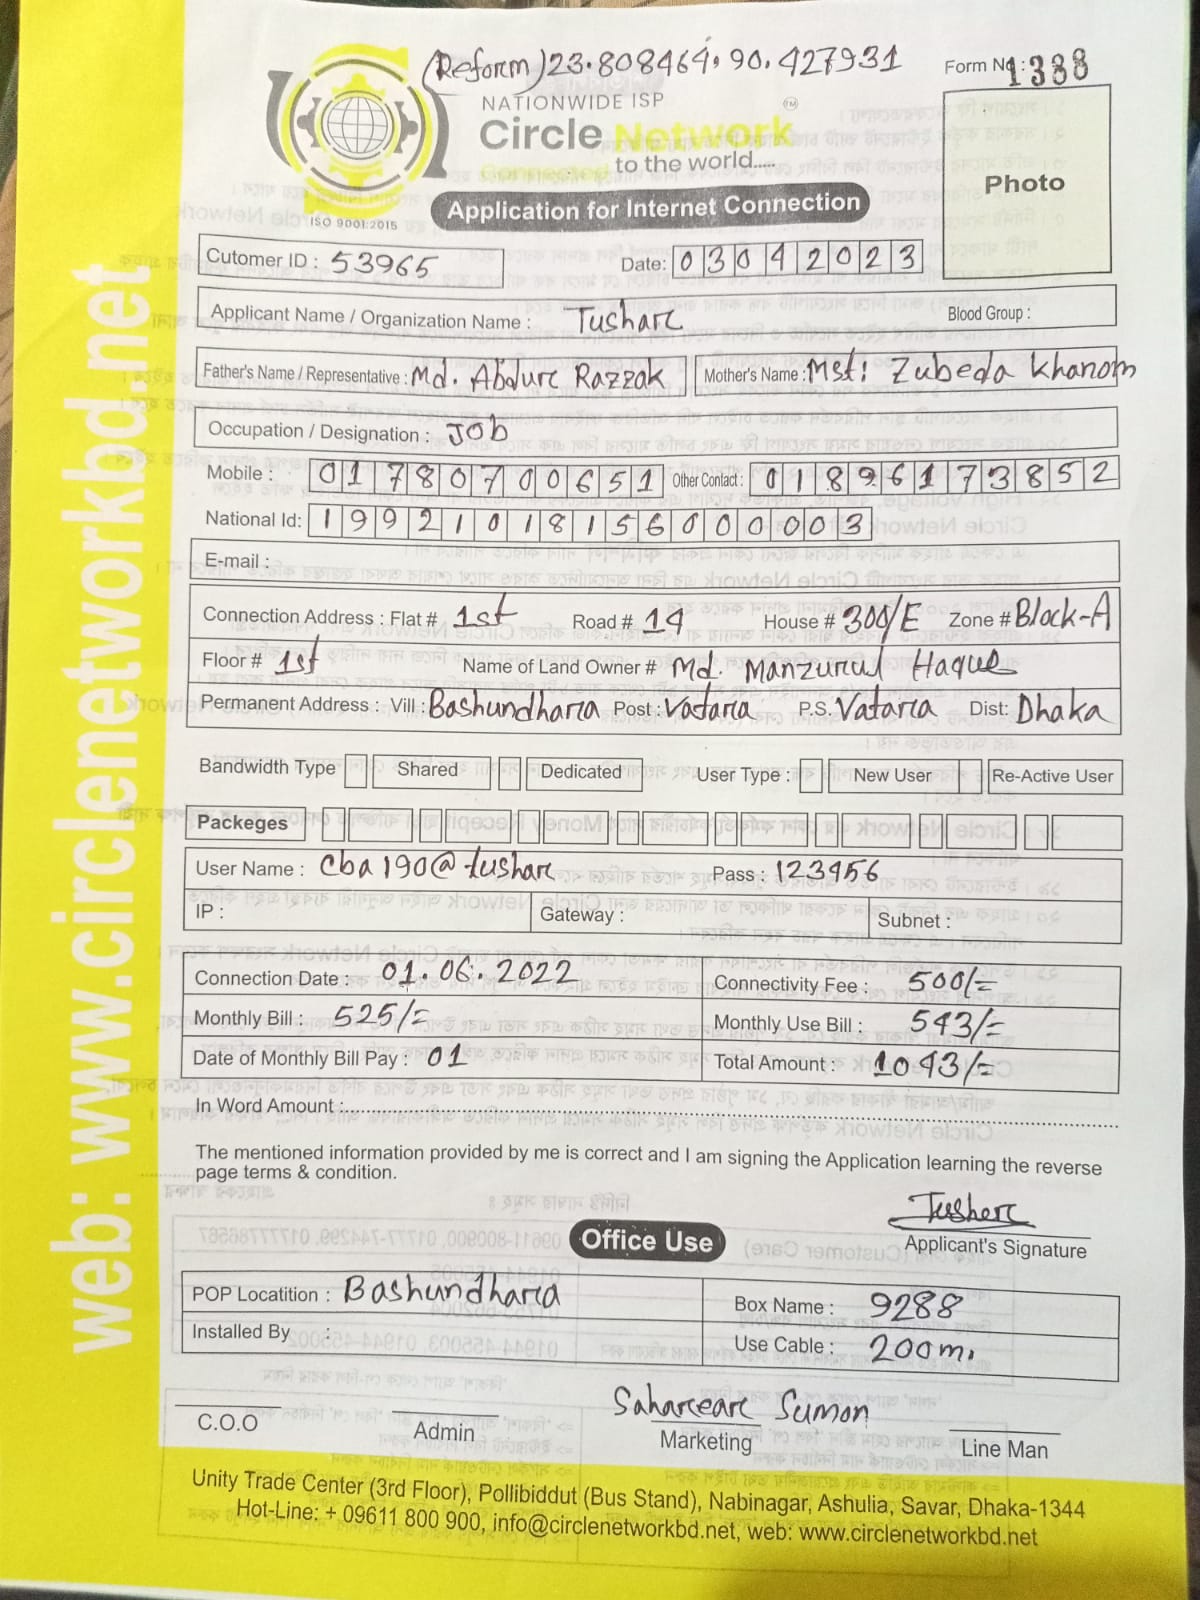 (Reform) 23.808464, 90.427931
Form No : 1388
NATIONWIDE ISP
TM
Circle Network
to the world.....
ISO 9001:2015
Application for Internet Connection
Photo
Cutomer ID : 53965
Date: 03042023
Applicant Name / Organization Name : Tushar
Blood Group :
Father's Name / Representative : Md. Abdur Razzak
Mother's Name : Mst: Zubeda Khanom
Occupation / Designation : Job
Mobile : 01780700651
Other Contact : 01896173852
National Id: 19921018156000003
E-mail :
Connection Address : Flat # 1st Road # 14 House # 300/E Zone # Block-A
Floor # 1st Name of Land Owner # Md. Manzurul Haque
Permanent Address : Vill : Bashundhara Post : Vatara P.S. Vatara Dist: Dhaka
Bandwidth Type Shared Dedicated User Type : New User Re-Active User
Packeges
User Name : cba190@tushar Pass : 123456
IP : Gateway : Subnet :
Connection Date : 01.06.2022
Connectivity Fee : 500/=
Monthly Bill : 525/=
Monthly Use Bill : 543/=
Date of Monthly Bill Pay : 01
Total Amount : 1043/=
In Word Amount :
The mentioned information provided by me is correct and I am signing the Application learning the reverse
page terms & condition.
Tusher
Applicant's Signature
Office Use
POP Locatition : Bashundhara
Box Name : 9288
Installed By :
Use Cable : 200m.
Sahareear Sumon
C.O.O
Admin
Marketing
Line Man
Unity Trade Center (3rd Floor), Pollibiddut (Bus Stand), Nabinagar, Ashulia, Savar, Dhaka-1344
Hot-Line: + 09611 800 900, info@circlenetworkbd.net, web: www.circlenetworkbd.net
web: www.circlenetworkbd.net